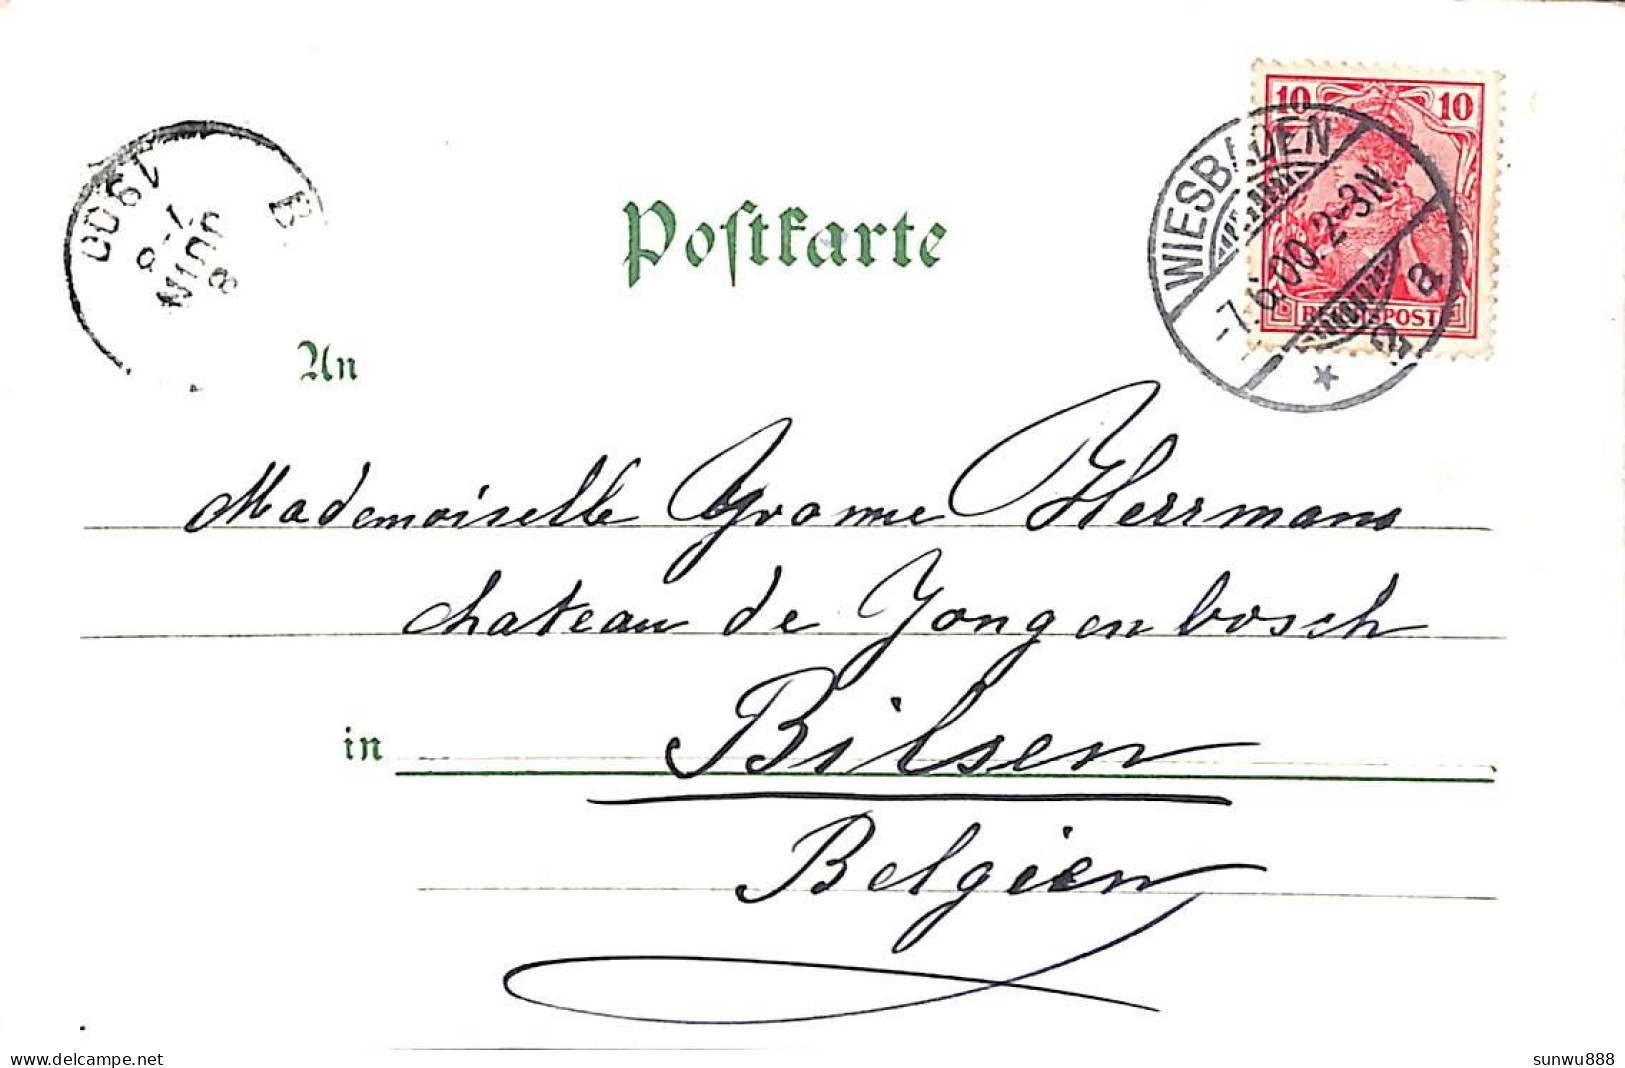 10 10
WIESBADEN
-7.6.00.2-3N.
2 a
*
REICHSPOST
B
8
JUIN
1900
Postkarte
An
Mademoiselle Yvonne Herrmans
chateau de Jongenbosch
in Bilsen
Belgien
sunwu888
www.delcampe.net